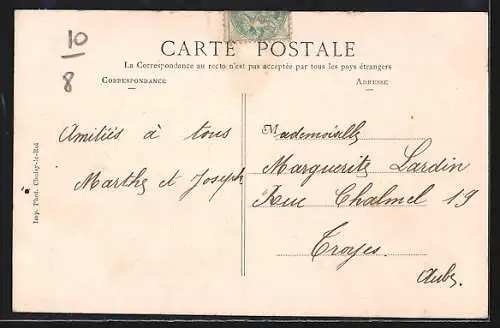 10
8
CARTE POSTALE
La Correspondance au recto n'est pas acceptée par tous les pays étrangers
CORRESPONDANCE
ADRESSE
Amitiés à tous
Marthe et Joseph
Mademoiselle
Marguerite Lardin
Rue Chalmel 19
Troyes
Aube
Imp. Phot. Choisy-le-Roi